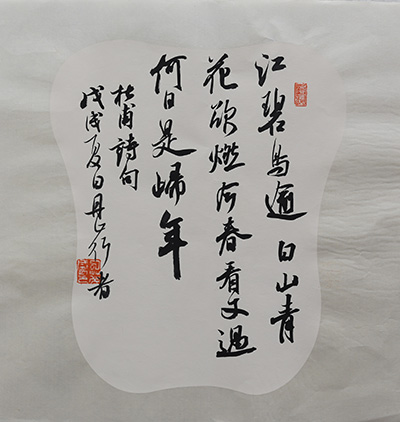 江碧鳥逾白山青
花欲燃今春看又過
何日是歸年
杜甫詩句
戊戌夏日丹丘行者